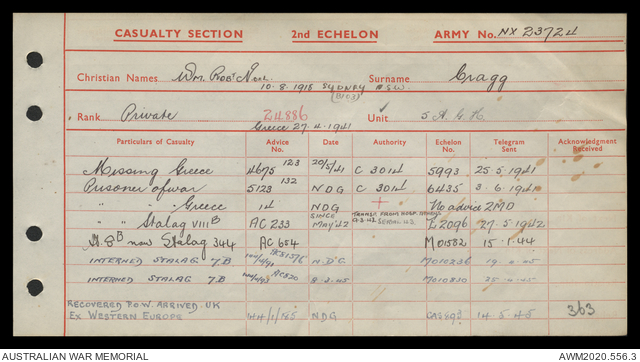 CASUALTY SECTION 2nd ECHELON ARMY No. NX 23724
Christian Names Wm. Robt Neil Surname Cragg
10.8.1915 SYDNEY NSW
B103
Rank Private 24886 Unit 5 A.G.H.
Greece 27.4.1941
Particulars of Casualty Advice No. Date Authority Echelon No. Telegram Sent Acknowledgment Received
Missing Greece 4675 123 20/5/41 C 3014 5993 25.5.1941
Prisoner of war 5123 132 NDG C 3014 6435 3.6.1941
" " " Greece 14 NDG + No advice 2MD
" " Stalag VIII B AC 233 SINCE MAY '42 TRANSF. FROM HOSP. E2096 27.5.1942
St. 8B now Stalag 344 AC 654 M01582 15.1.44
INTERNED STALAG 7.B AC51576 N.D.G M010236
INTERNED STALAG 7B AC520 M010830
RECOVERED P.O.W. ARRIVED UK
EX WESTERN EUROPE 44/1/85 NDG CAS 14.5.45 363
AUSTRALIAN WAR MEMORIAL AWM2020.556.3